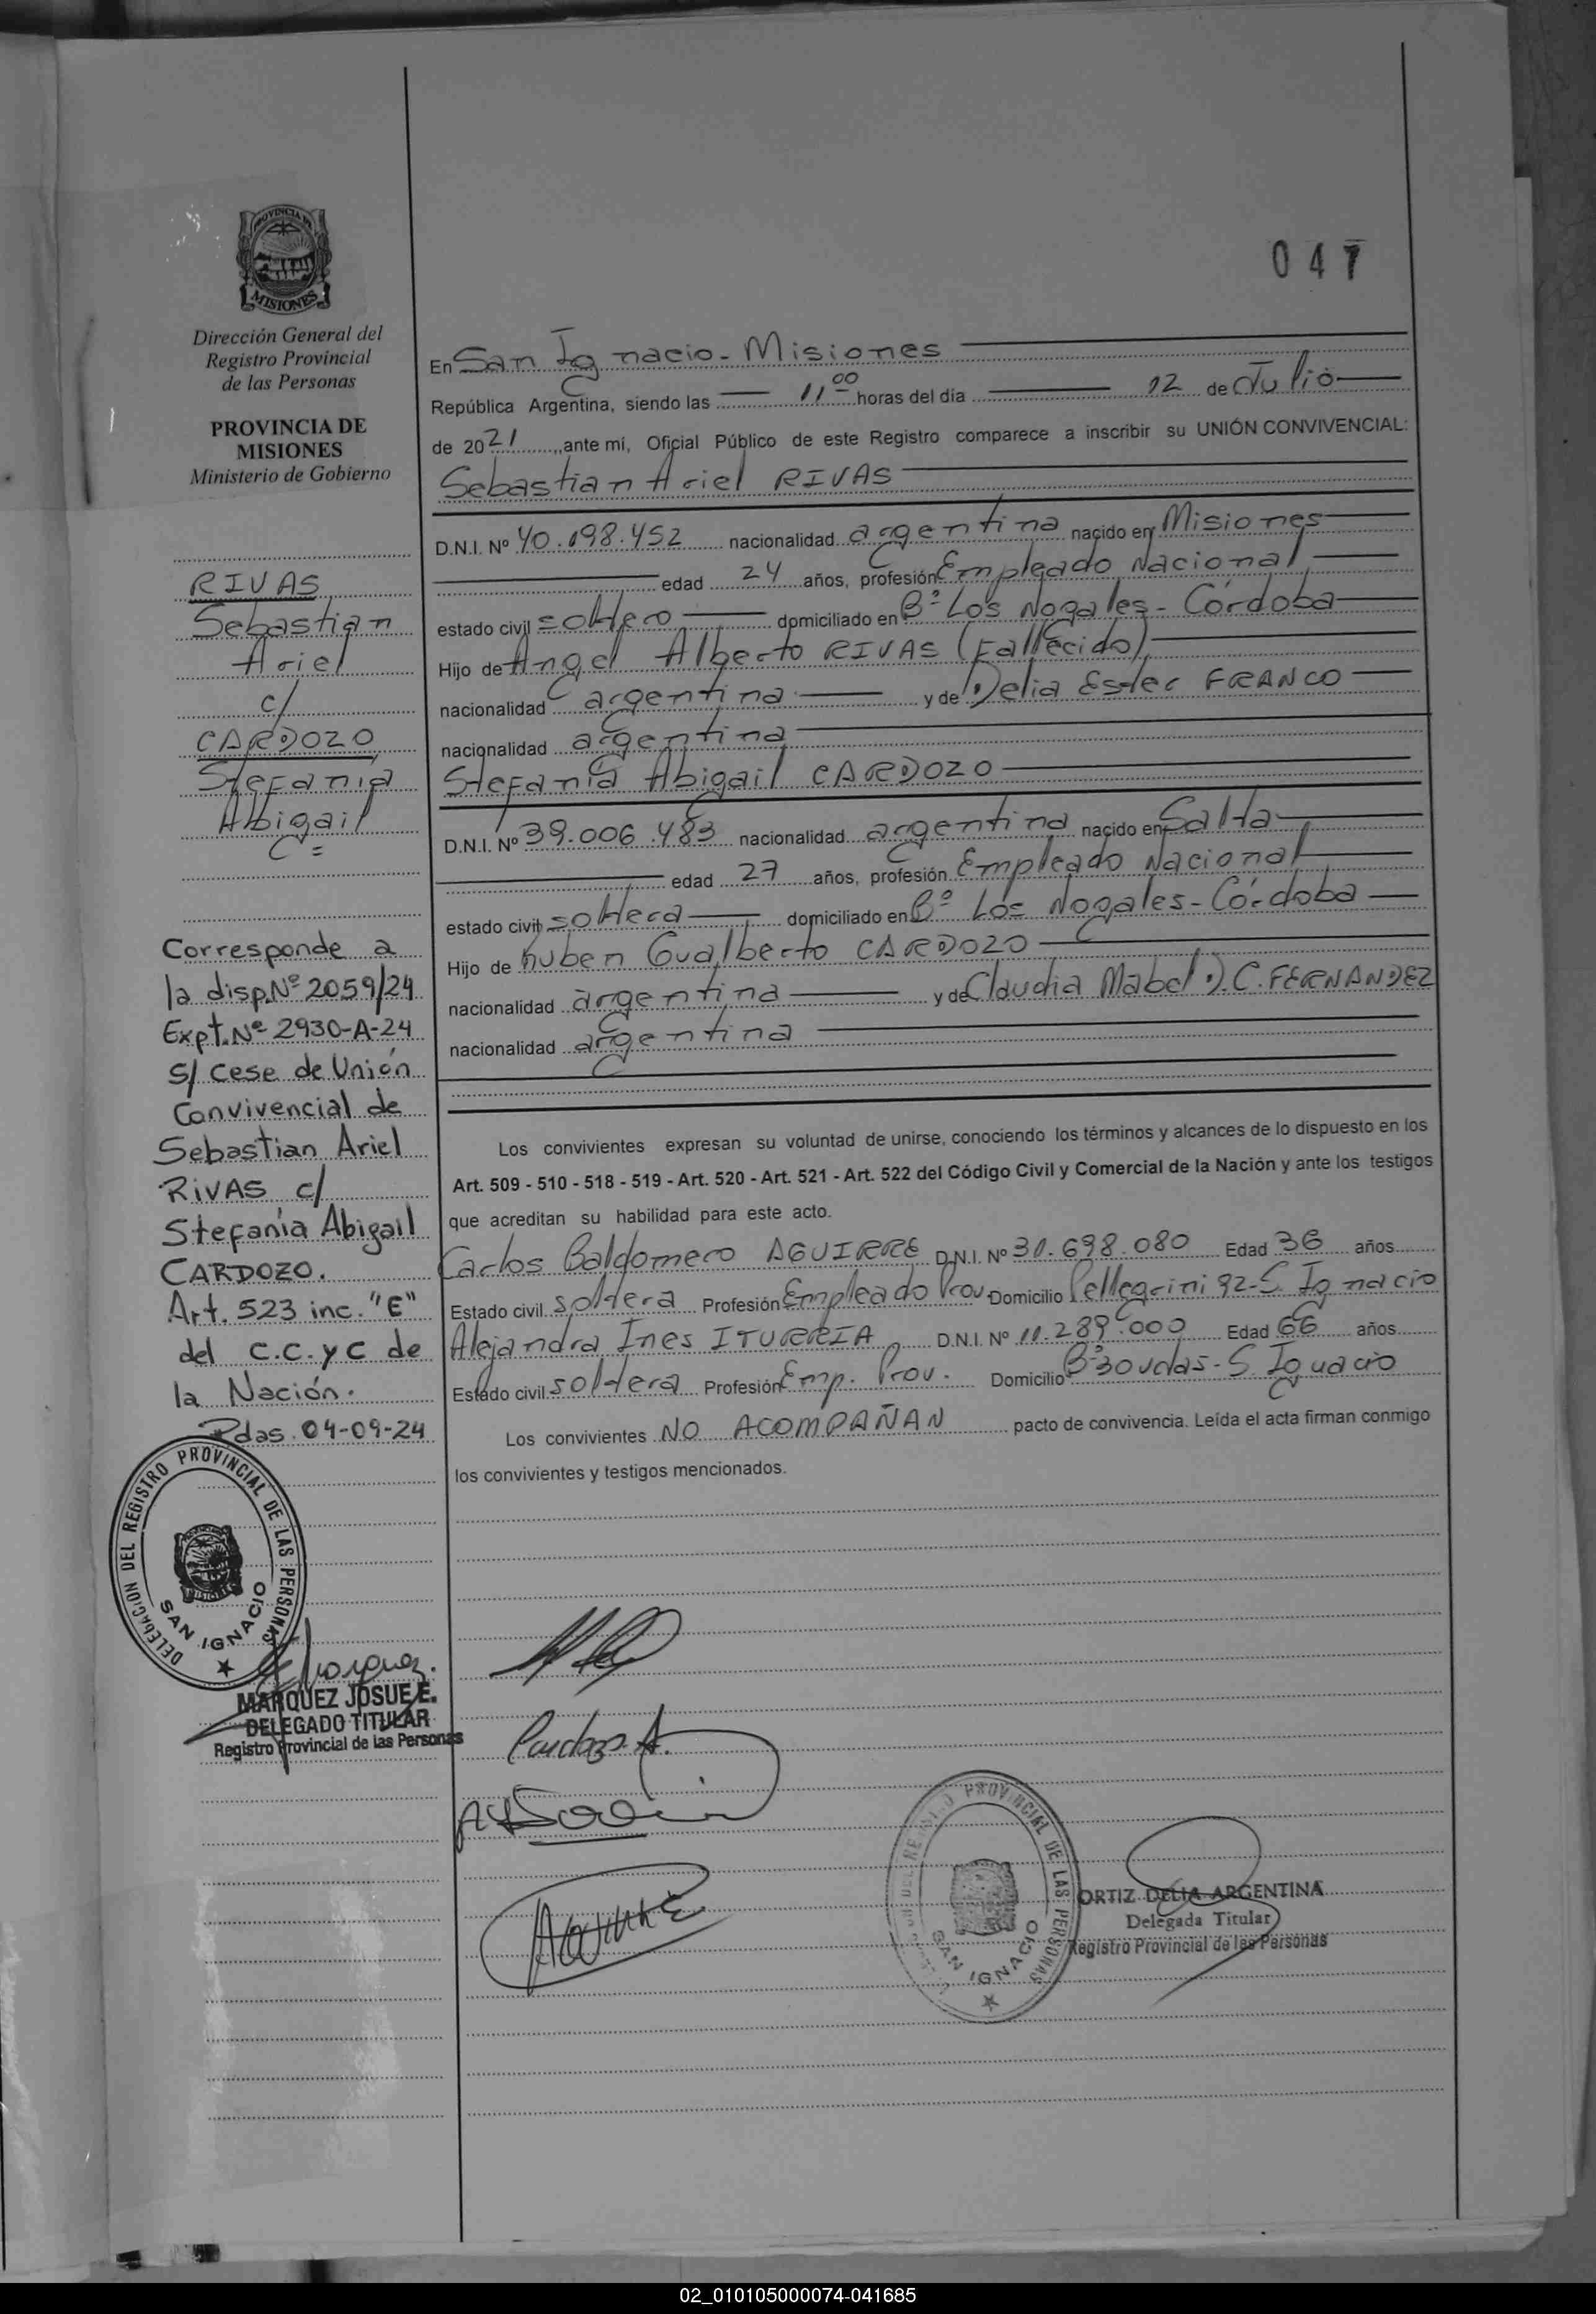 047
PROVINCIA DE
MISIONES
Dirección General del
Registro Provincial
de las Personas
PROVINCIA DE
MISIONES
Ministerio de Gobierno
RIVAS
Sebastian
Ariel
c/
CARDOZO
Stefanía
Abigail
Corresponde a
la disp. Nº 2059/24
Expt. Nº 2930-A-24
S/ Cese de Unión
Convivencial de
Sebastian Ariel
RIVAS c/
Stefanía Abigail
CARDOZO.
Art. 523 inc. "E"
del C.C. y C de
la Nación.
Pdas. 04-09-24
DELEGACION DEL REGISTRO PROVINCIAL DE LAS PERSONAS
SAN IGNACIO
MARQUEZ JOSUE E.
DELEGADO TITULAR
Registro Provincial de las Personas
En San Ignacio - Misiones
República Argentina, siendo las 11,00 horas del día 12 de Julio
de 2021, ante mi, Oficial Público de este Registro comparece a inscribir su UNIÓN CONVIVENCIAL:
Sebastian Ariel RIVAS
D.N.I. Nº 40.198.452 nacionalidad argentina nacido en Misiones
edad 24 años, profesión Empleado Nacional
estado civil soltero domiciliado en Bº Los Nogales - Córdoba
Hijo de Angel Alberto RIVAS (Fallecido)
nacionalidad argentina y de Delia Ester FRANCO
nacionalidad argentina
Stefanía Abigail CARDOZO
D.N.I. Nº 39.006.483 nacionalidad argentina nacido en Salta
edad 27 años, profesión Empleado Nacional
estado civil soltera domiciliado en Bº Los Nogales - Córdoba
Hijo de Ruben Gualberto CARDOZO
nacionalidad argentina y de Claudia Mabel D. C. FERNANDEZ
nacionalidad argentina
Los convivientes expresan su voluntad de unirse, conociendo los términos y alcances de lo dispuesto en los
Art. 509 - 510 - 518 - 519 - Art. 520 - Art. 521 - Art. 522 del Código Civil y Comercial de la Nación y ante los testigos
que acreditan su habilidad para este acto.
Carlos Baldomero AGUIRRE D.N.I. Nº 31.698.080 Edad 36 años
Estado civil soltera Profesión Empleado Prov. Domicilio Pellegrini 92 - S. Ignacio
Alejandra Ines ITURRIA D.N.I. Nº 11.289.000 Edad 66 años
Estado civil soltera Profesión Emp. Prov. Domicilio Bº 30 vdas - S. Ignacio
Los convivientes NO ACOMPAÑAN pacto de convivencia. Leída el acta firman conmigo
los convivientes y testigos mencionados.
Cardozo A.
REGISTRO PROVINCIAL DE LAS PERSONAS
SAN IGNACIO
ORTIZ DELIA ARGENTINA
Delegada Titular
Registro Provincial de las Personas
02_010105000074-041685